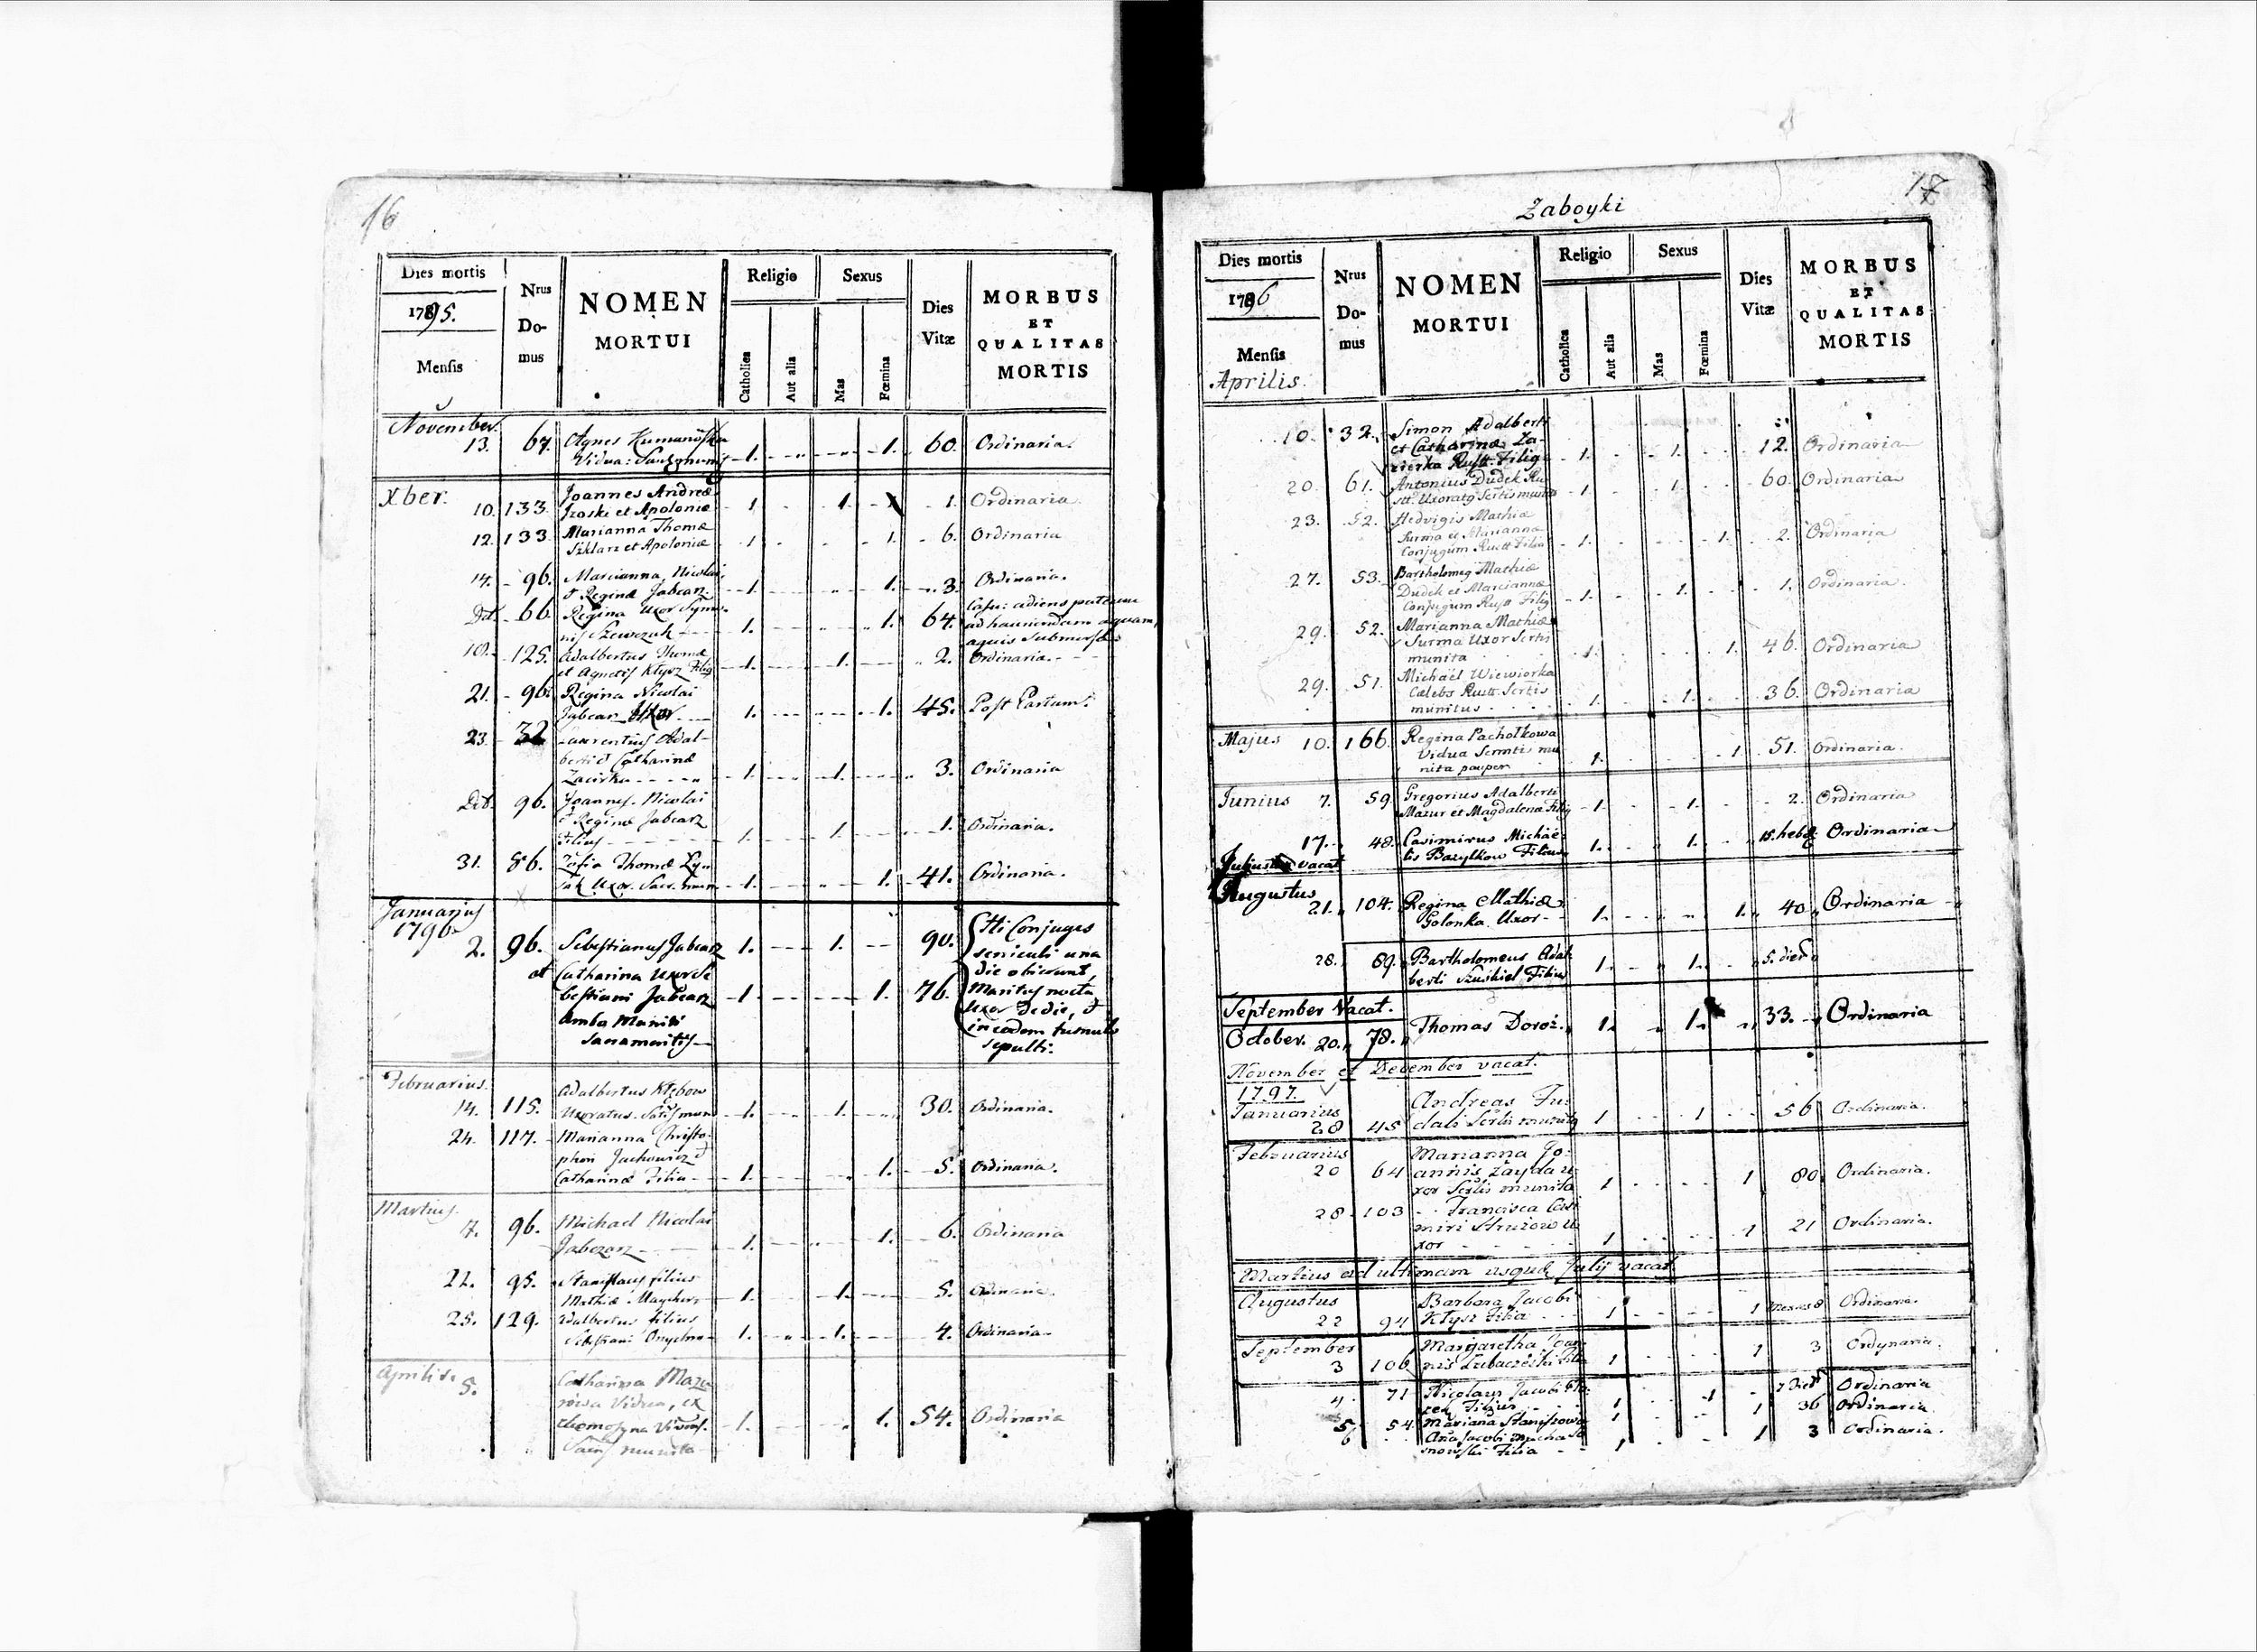 16
Dies mortis
1795.
Mensis
Nrus
Do-
mus
NOMEN
MORTUI
Religio
Catholica
Aut alia
Sexus
Mas
Fœmina
Dies
Vitæ
MORBUS
ET
QUALITAS
MORTIS
November.
13. 67. Agnes
Vidua: 1. 1. 60. Ordinaria.
Xber.
10. 133 Joannes Andreæ
et Apoloniæ 1. 1. 1. Ordinaria
12. 133 Marianna Thomæ
Szklarz et Apoloniæ 1 1. 6. Ordinaria
14. 96. Marianna, Nicolai
et Reginæ Jabcarz 1. 1. 3. Ordinaria.
Dtt. 66. Regina Uxor Symo-
nis Szewczuk 1. 1. 64. Casu: adiens puteum
ad hauriendam aquam,
aquis submersa
18. 125. Adalbertus Thomæ
et Agnetis Kłysz Filius 1. 1. 2. Ordinaria.
21. 96. Regina Nicolai
Jabcarz Uxor 1. 1. 45. Post Partum.
23. 32 Laurentius Adal-
berti et Catharinæ
Zacirka 1. 1. 3. Ordinaria
Dtt. 96. Joannes Nicolai
et Reginæ Jabcarz
Filius 1. 1. 1. Ordinaria.
31. 86. Zofia Thomæ
Uxor 1. 1. 41. Ordinaria.
Januarius
1796
2. 96. Sebestianus Jabcarz 1. 1. 90.
et Catharina Uxor Se-
bestiani Jabcarz 1. 1. 76.
Ambo Muniti
Sacramentis
Hi Conjuges
seniculi una
die obierunt,
Maritus noctu
Uxor de die, et
in eodem tumulo
sepulti.
Februarius.
14. 115. Adalbertus
Uxoratus 1. 1. 30. Ordinaria.
24. 117. Marianna Christo-
phori Jachowicz et
Catharinæ Filia 1. 1. 5. Ordinaria.
Martius.
7. 96. Michael Nicolai
Jabczarz 1. 1. 6. Ordinaria
22. 95. Stanislaus filius
Mathiæ 1. 1. 5. Ordinaria.
25. 129. Adalbertus filius
Sebestiani 1. 1. 4. Ordinaria
Aprilis.
5. Catharina
Vidua, ex
munita 1. 1. 54. Ordinaria
17
Zaboyki
Dies mortis
1796
Mensis
Aprilis.
Nrus
Do-
mus
NOMEN
MORTUI
Religio
Catholica
Aut alia
Sexus
Mas
Fœmina
Dies
Vitæ
MORBUS
ET
QUALITAS
MORTIS
10. 32. Simon Adalberti
et Catharinæ Za-
cierka Rustt. Filius 1. 1. 12. Ordinaria
20. 61. Antonius Dudek Ru-
stt. Uxoratus Scrtis munitus 1. 1. 60. Ordinaria
23. 52. Hedvigis Mathiæ
Surma et Marianna
Conjugum Rustt Filia 1. 1. 2. Ordinaria
27. 53. Bartholomeus Mathiæ
Dudek et Mariannæ
Conjugum Rustt Filius 1. 1. 1. Ordinaria.
29. 52. Marianna Mathiæ
Surma Uxor Scrtis
munita 1. 1. 46. Ordinaria
29. 51. Michaël Wiewiorka
Cælebs Rustt. Scrtis
munitus 1. 1. 36. Ordinaria
Majus 10. 166. Regina Pachołkowa
Vidua mu-
nita pauper. 1. 1 51. Ordinaria.
Junius 7. 59. Gregorius Adalberti
Mazur et Magdalena Filius 1. 1. 2. Ordinaria
17. 48. Casimirus Michaë-
lis Filius 1. 1. 15. hebd. Ordinaria
Julius vacat
Augustus
21. 104. Regina Mathiæ
Golonka Uxor 1. 1. 40. Ordinaria
28. 89. Bartholomeus Adal-
berti Filius 1. 1. 5. dies
September Vacat.
October. 20. 78. Thomas Doroż. 1. 1. 33. Ordinaria
November et December vacat.
1797.
Januarius
28 45 Andreas
Scrtis munitus 1 1 56 Ordinaria.
Februarius
20 64 Marianna Jo-
annis Zayda u-
xor Scrtis munita 1 1 80 Ordinaria.
28. 103 Francisca Casi-
miri u-
xor 1 1 21 Ordinaria.
Martius ad ultimam usque Julij vacat.
Augustus
22 94 Barbara Jacobi
Kłysz Filia 1 1 Menses 8 Ordinaria.
September
3 106 Margaretha Joan-
nis Filia 1 1 3 Ordynaria.
4. 71 Nicolaus Jacobi
Filius 1 1 7 Dies Ordinaria
5. 54 Mariana 1 1 36 Ordinaria.
6 Jacobi
Filia 1 1 3 Ordinaria.